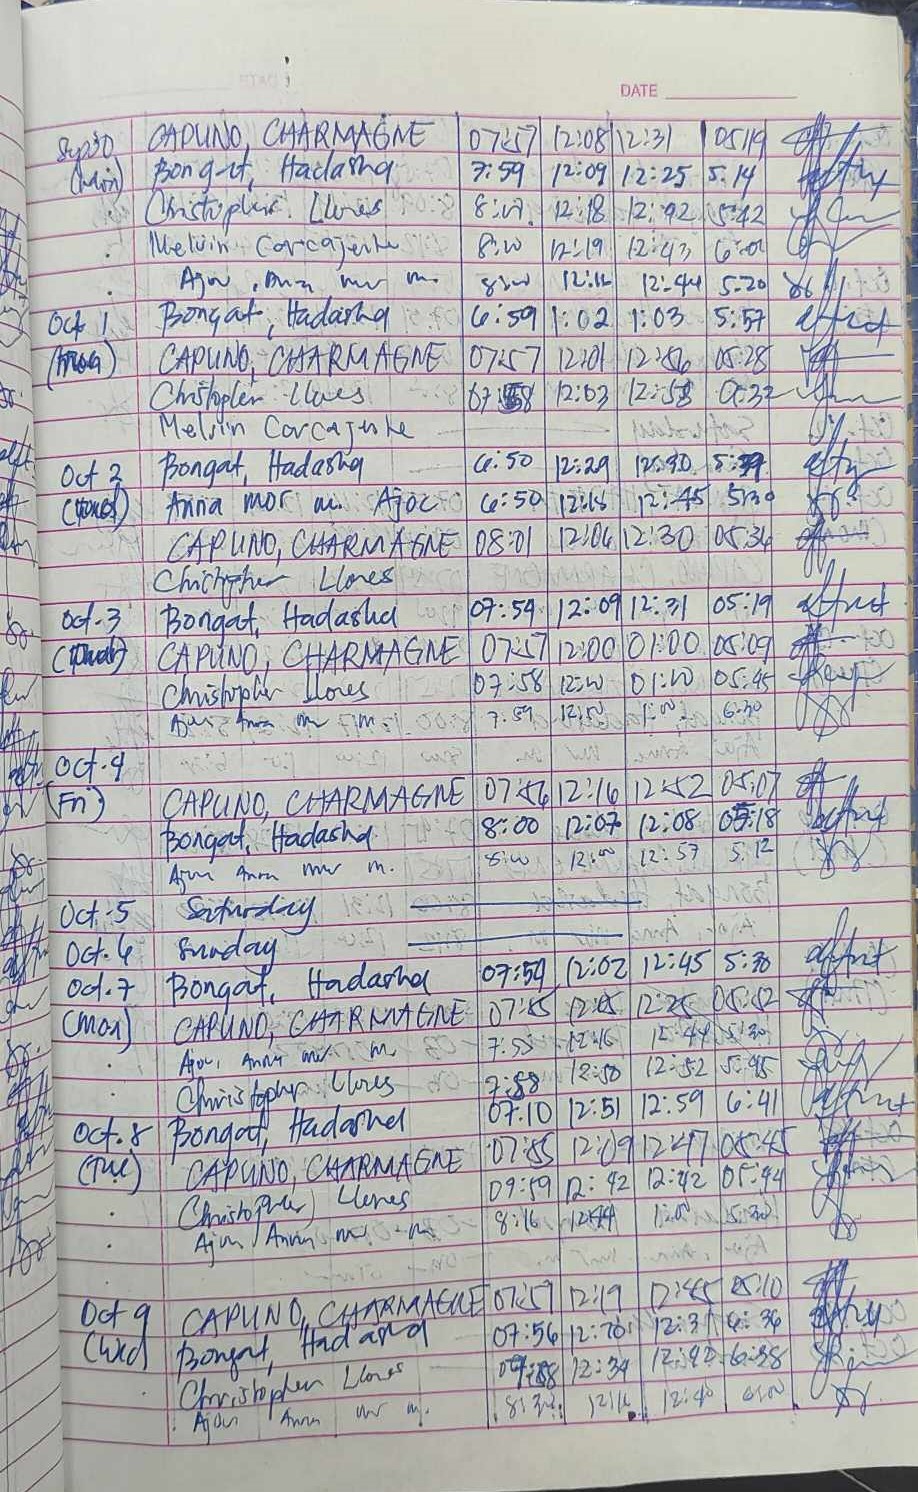 DATE
Sep 30 CAPUNO, CHARMAGNE 07:57 12:08 12:31 05:19
(Mon) Bongat, Hadasha 7:59 12:09 12:25 5:14
Christopher Llones 12:18 5:42
Melvin Corcajente 12:19 12:43
Ajoc, Anna mor m. 12:44 5:20
Oct 1 Bongat, Hadasha 6:59 1:02 1:03 5:57
CAPUNO, CHARMAGNE 07:57 12:01 12:56 05:28
Christopher Llones 12:03 12:58
Melvin Corcajente
Oct 2 Bongat, Hadasha 6:50 12:29
Anna mor m. Ajoc 6:50 12:45
CAPUNO, CHARMAGNE 08:01 12:06 12:30 05:36
Christopher Llones
Oct. 3 Bongat, Hadasha 07:54 12:09 12:31 05:19
CAPUNO, CHARMAGNE 07:57 12:00 01:00 05:09
Christopher Llones 07:58 05:45
Ajoc Anna mor m. 7:59 1:00 6:30
Oct. 4
(Fri) CAPUNO, CHARMAGNE 07:56 12:16 12:52 05:07
Bongat, Hadasha 8:00 12:07 12:08
Ajoc Anna mor m. 12:00 12:57 5:12
Oct. 5 Saturday
Oct. 6 Sunday
Oct. 7 Bongat, Hadasha 07:54 12:02 12:45 5:30
(Mon) CAPUNO, CHARMAGNE 07:55 12:05 12:25 05:52
Ajoc, Anna mor m 12:16 12:44 5:30
Christopher Llones 7:58 12:50 12:52
Oct. 8 Bongat, Hadasha 07:10 12:51 12:59 6:41
(Tue) CAPUNO, CHARMAGNE 07:55 12:09 12:47 05:45
Christopher Llones 09:59 12:42 12:42 05:44
Ajoc Anna m. m. 8:16 12:44 5:30
Oct 9 CAPUNO, CHARMAGNE 07:57 12:19 12:45 05:10
(Wed) Bongat, Hadasha 07:56 12:31 6:36
Christopher Llones 12:34 12:42 6:38
Ajoc Anna mor m. 12:40 6:00